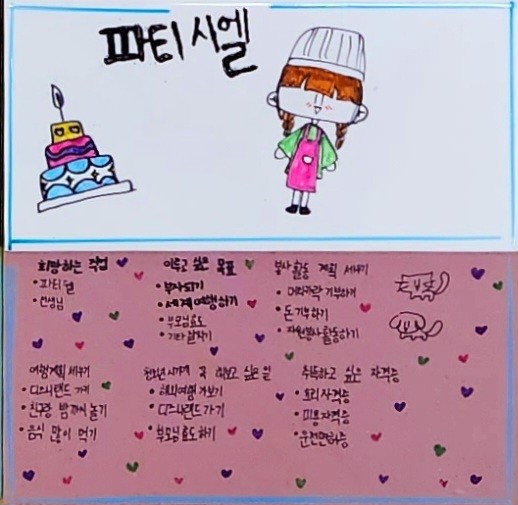 파티시엘
희망하는 직업
• 파티쉘
• 선생님
이루고 싶은 목표
• 부자되기
• 세계여행하기
• 부모님효도
• 기타 잘치기
봉사 활동 계획 세우기
• 머리카락 기부하기
• 돈 기부하기
• 자원봉사 활동하기
여행계획 세우기
• 디즈니랜드 가기
• 친구랑 밤까지 놀기
• 음식 많이 먹기
청소년 시기에 꼭 하고 싶은 일
• 해외여행 가보기
• 디즈니랜드 가기
• 부모님 효도하기
취득하고 싶은 자격증
• 요리사 자격증
• 미용 자격증
• 운전면허증